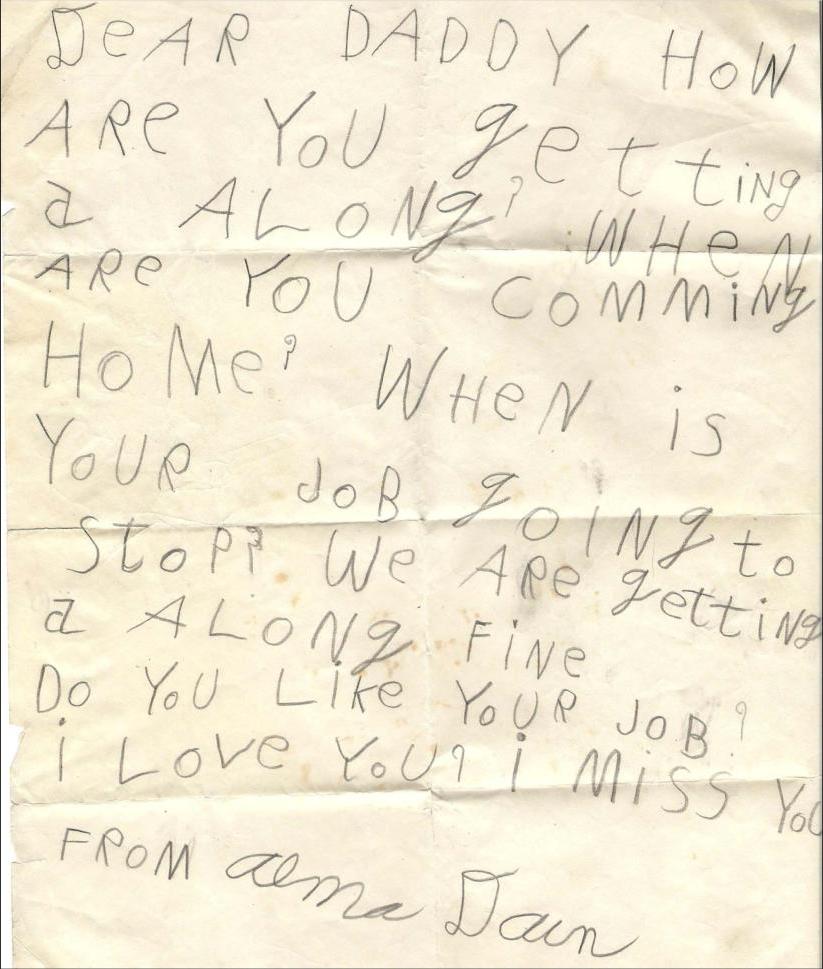 DeAR DADDY HoW
ARe YoU getting
a ALoNg? WHeN
ARe YoU CoMMiNg
HoMe? WHeN is
YoUR JoB goINg to
StoP? We ARe gettiNg
a ALoNg FiNe
Do YoU Like YoUR JoB?
i Love YoU? i MiSS YoU
FRoM alma Dawn